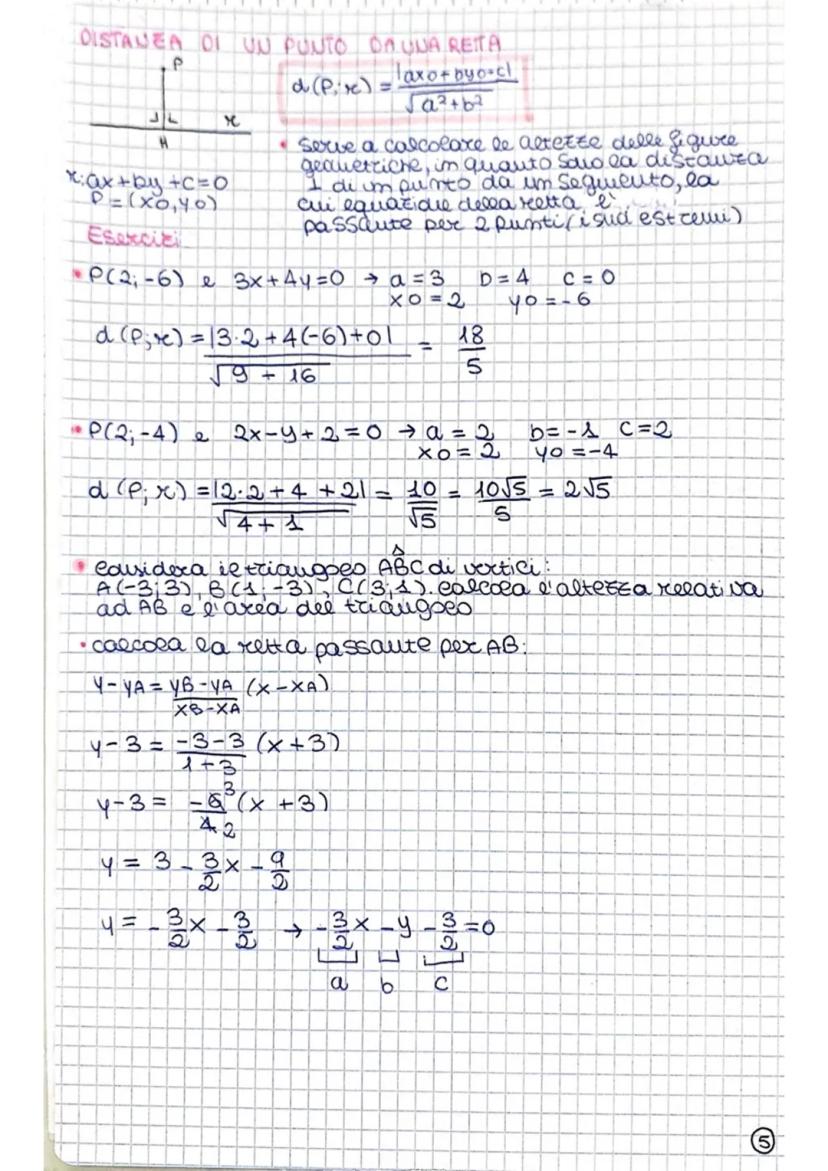 DISTANZA DI UN PUNTO DA UNA RETTA
P
d(P;r) = |ax0+by0+c| / √a²+b²
r
H
• serve a calcolare le altezze delle figure
geometriche, in quanto sono la distanza
r: ax+by+c=0
⊥ di un punto da un segmento, la
P=(x0,y0)
cui equazione della retta è
passante per 2 punti (i suoi estremi)
Esercizi
• P(2;-6) e 3x+4y=0 → a=3 b=4 c=0
x0=2 y0=-6
d(P;r) = |3·2+4(-6)+0| / √9+16 = 18/5
• P(2;-4) e 2x-y+2=0 → a=2 b=-1 c=2
x0=2 y0=-4
d(P;r) = |2·2+4+2| / √4+1 = 10/√5 = 10√5/5 = 2√5
• considera il triangolo ABC di vertici:
A(-3;3), B(1;-3), C(3;1). calcola l'altezza relativa
ad AB e l'area del triangolo
• calcola la retta passante per AB:
y-yA = yB-yA / xB-xA (x-xA)
y-3 = -3-3 / 1+3 (x+3)
y-3 = -6³/4₂ (x+3)
y = 3 - 3/2x - 9/2
y = -3/2x - 3/2 → -3/2x - y - 3/2 = 0
a b c
5